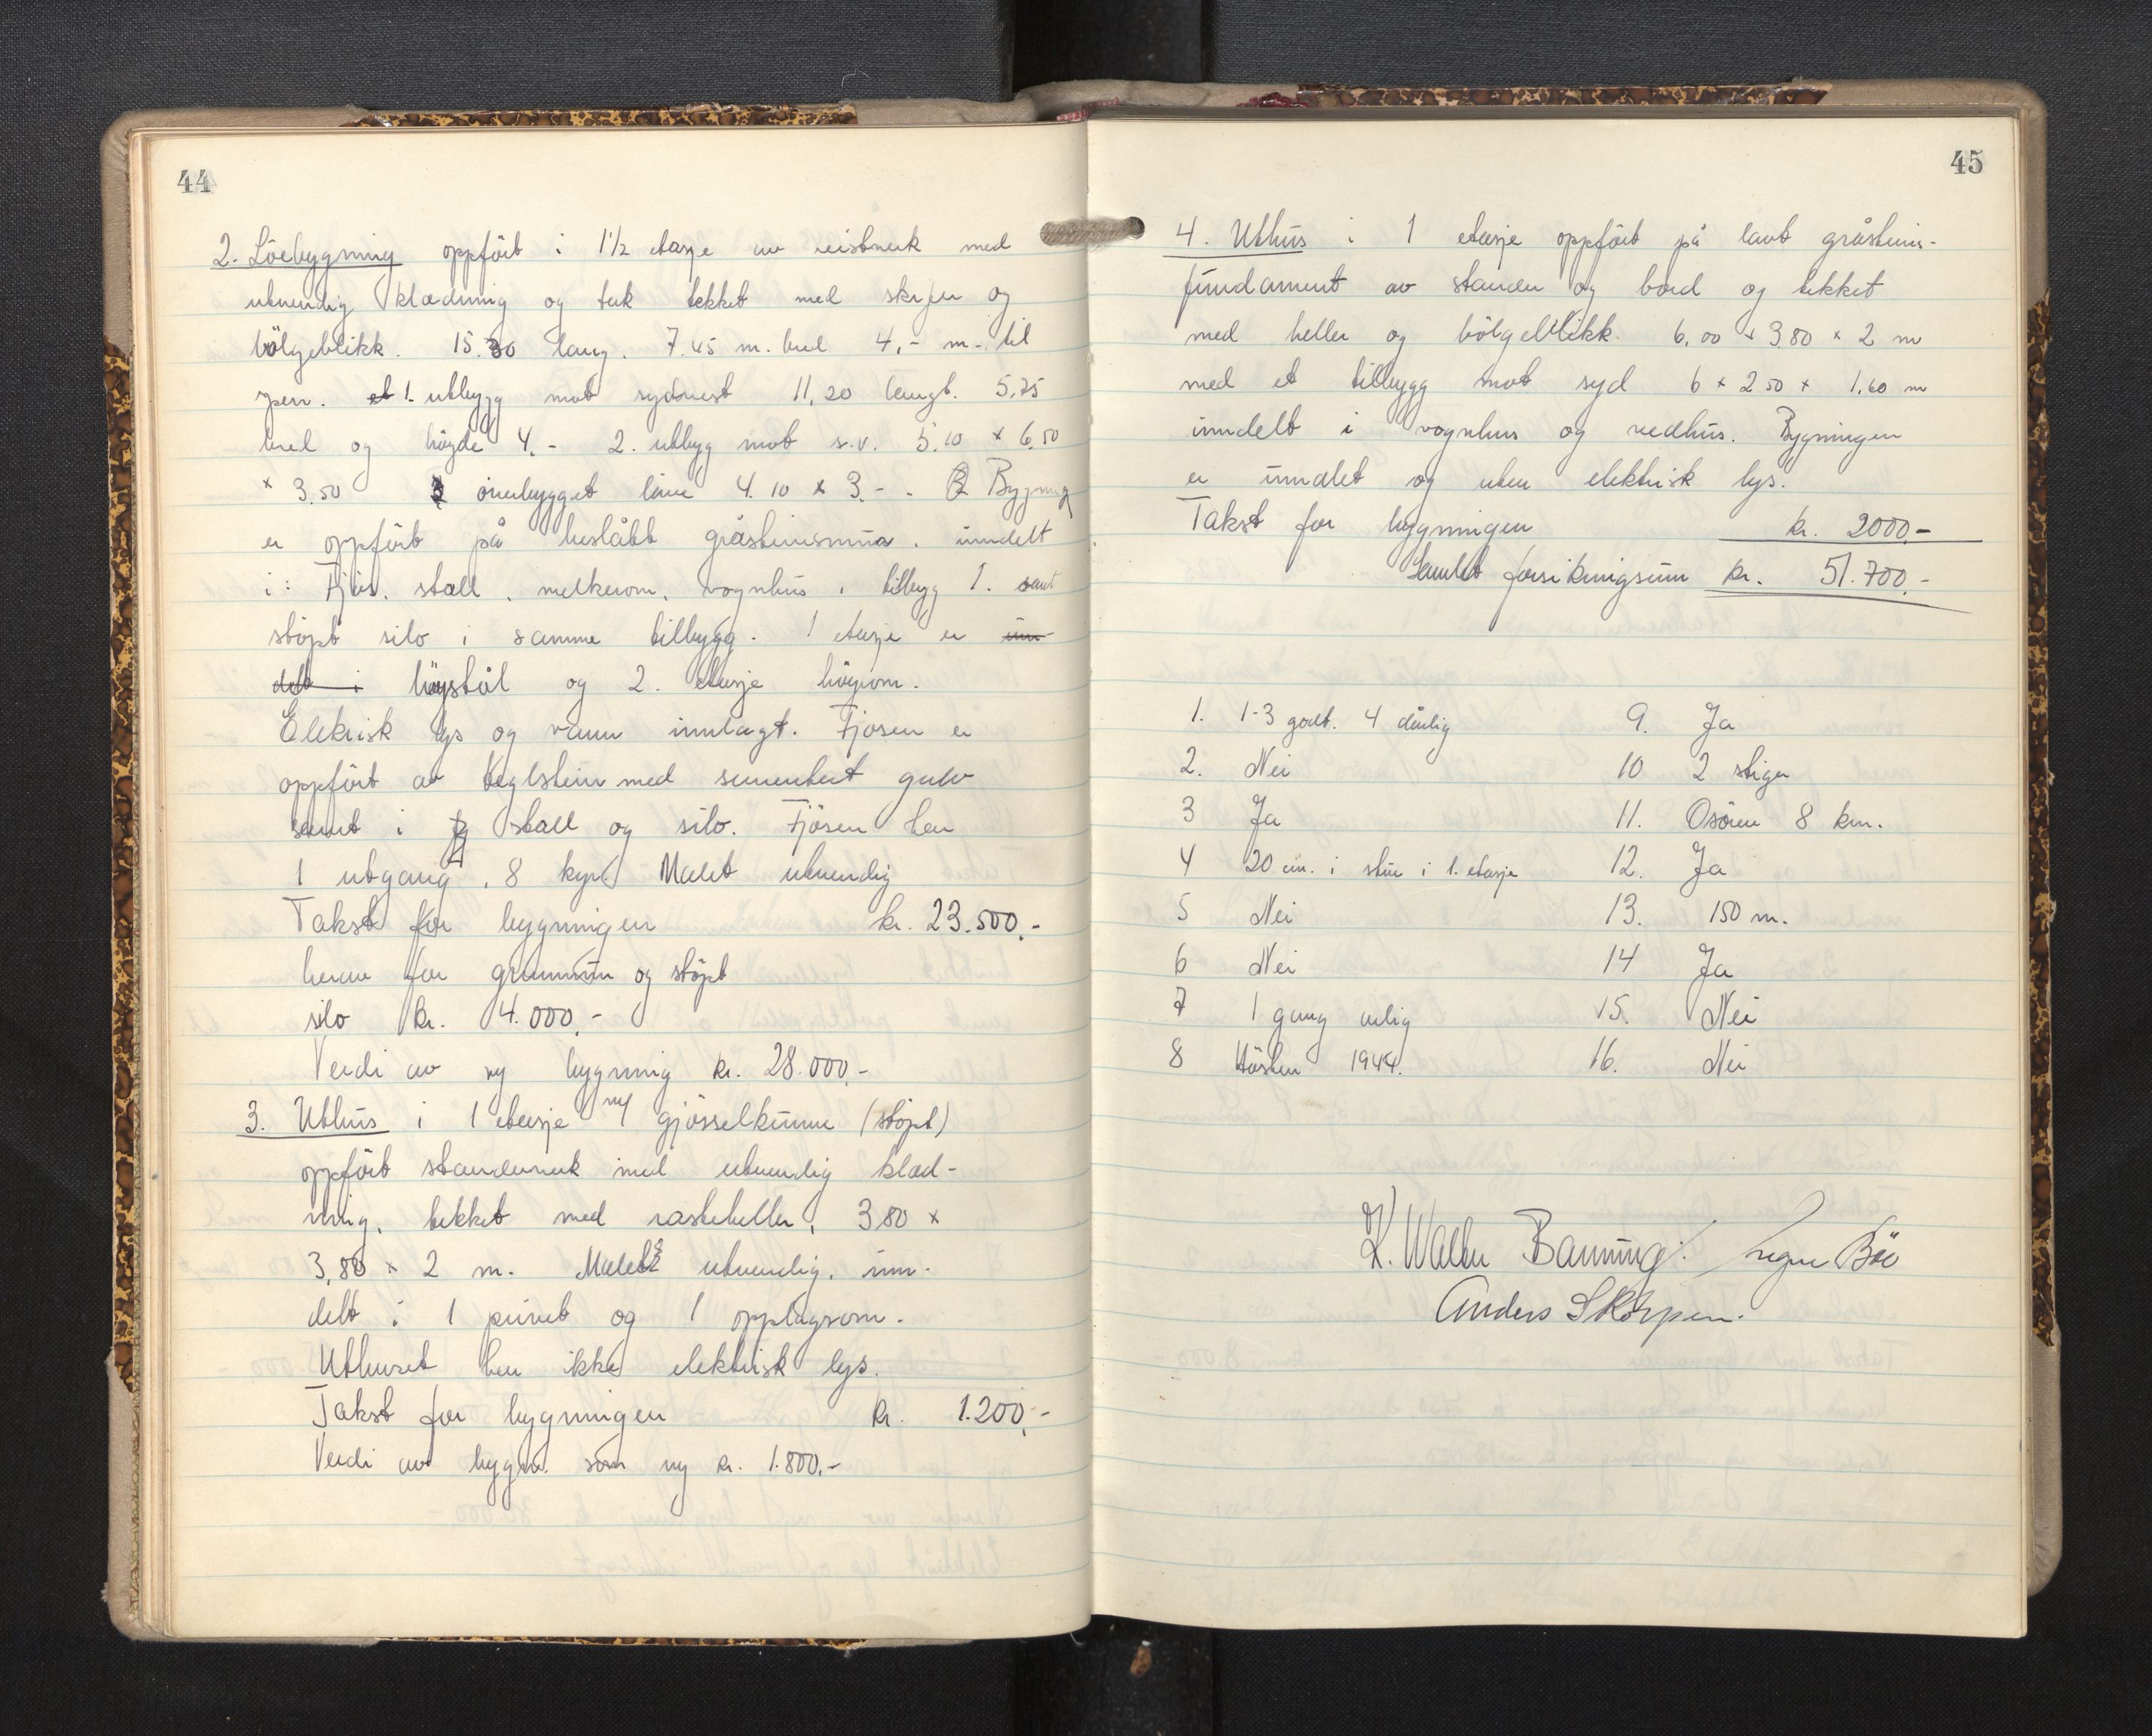 44
2. Löebygning oppfört i 1 1/2 etasje av reistverk med
utvendig klædning og tak tekket med skifer og
bölgeblikk. 15.30 lang. 7.45 m. bred 4,- m. til
gesi. 1. utbygg mot sydvest 11,20 lengt. 5,75
bred og höyde 4.- 2. utbygg mot s.v. 5.10 x 6.50
x 3.50 overbygget låve 4.10 x 3.- . Bygning
er oppfört på heslått gråsteinsmur. inndelt
i: Fjös. stall. melkerom. vognhus. tilbygg 1. samt
stöpt silo i samme tilbygg. 1 etasje er inn-
delt i höystål og 2. etasje höyrom.
Elektrisk lys og vann innlagt. Fjösen er
oppfört av teglstein med sementert gulv
samt i stall og silo. Fjösen har
1 utgang. 8 kyr. Malet utvendig
Takst for bygningen kr. 23.500.-
herav for grunnmur og stöpt
silo kr. 4.000.-
Verdi av ny bygning kr. 28.000.-
3. Uthus i 1 etasje m/ gjösselkumme (stöpt)
oppfört stenderverk med utvendig klæd-
ning, tekket med rasteheller, 380 x
3,80 x 2 m. Malet utvendig. inn-
delt i 1 privet og 1 opplagsrom.
Uthuset har ikke elektrisk lys.
Takst for bygningen kr. 1.200.-
Verdi av bygn. som ny kr. 1.800.-
45
4. Uthus i 1 etasje oppfört på lavt gråsteins-
fundament av stender og bord og tekket
med heller og bölgeblikk 6,00 x 3,80 x 2 m
med et tilbygg mot syd 6 x 2.50 x 1,60 m
inndelt i vognhus og vedhus. Bygningen
er umalet og uten elektrisk lys.
Takst for bygningen kr. 2000.-
Samlet forsikringsum kr. 51.700.-
1. 1-3 godt. 4 dårlig 9. Ja
2. Nei 10 2 stiger
3 Ja 11. Osören 8 km.
4 20 cm. i stue i 1. etasje 12. Ja
5 Nei 13. 150 m.
6 Nei 14 Ja
7 1 gang årlig 15. Nei
8 Hösten 1944. 16. Nei
K. Waller Banning. Böe
Anders Skorpen.